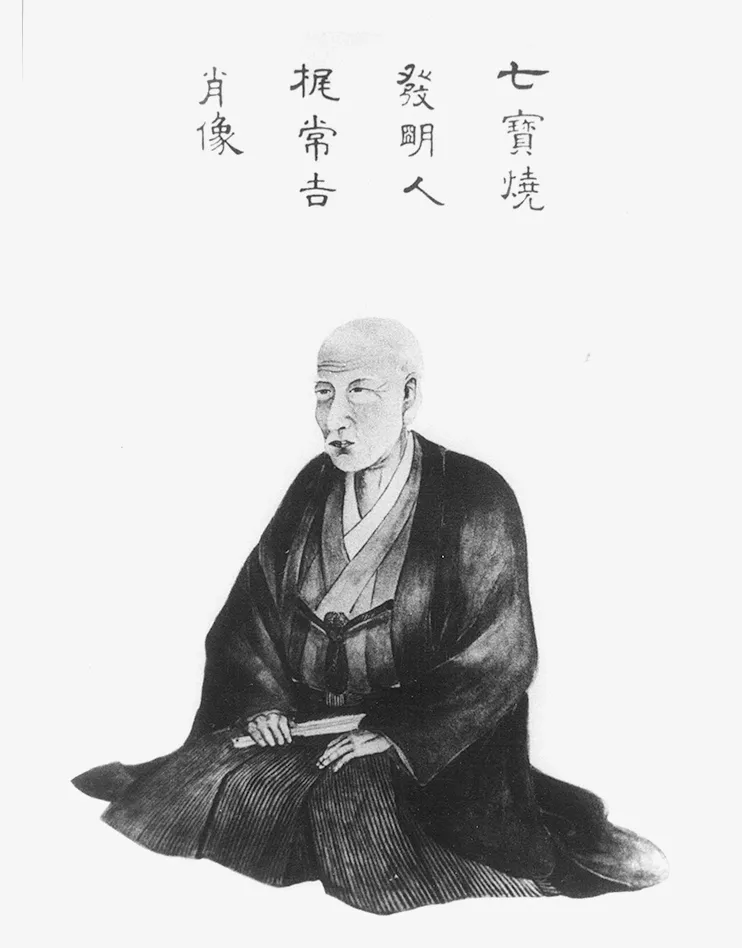 七寶燒
發明人
梶常吉
肖像